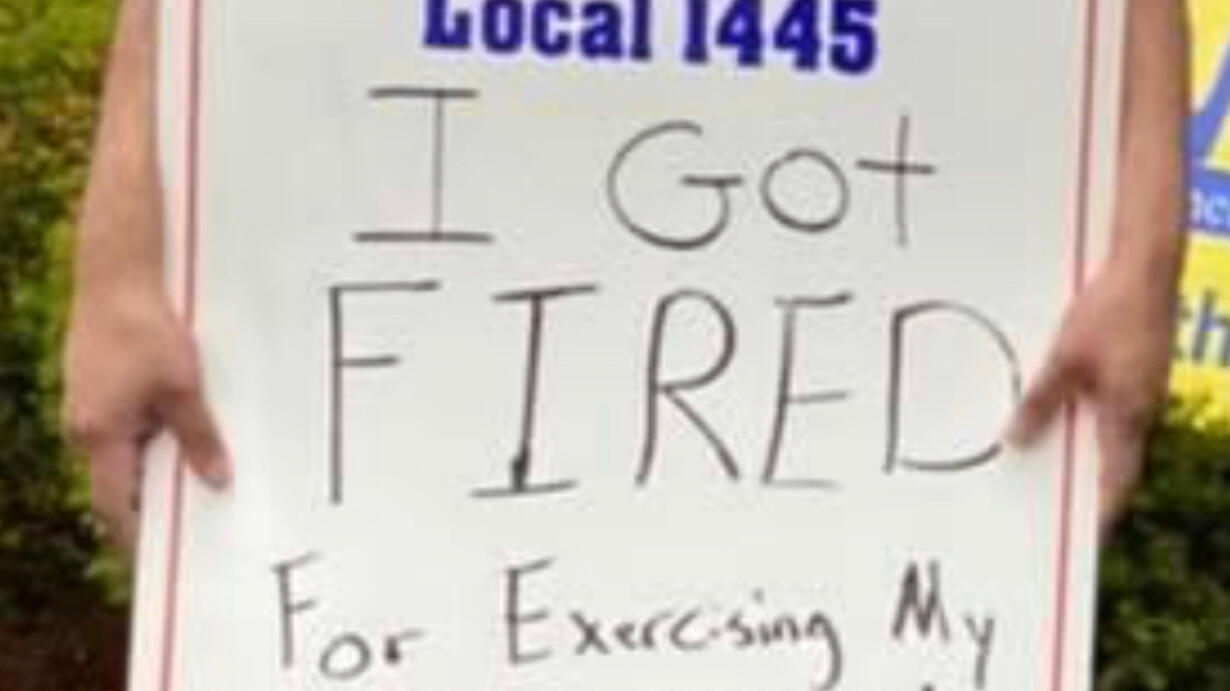 Local 1445
I Got
FIRED
For Exercising My